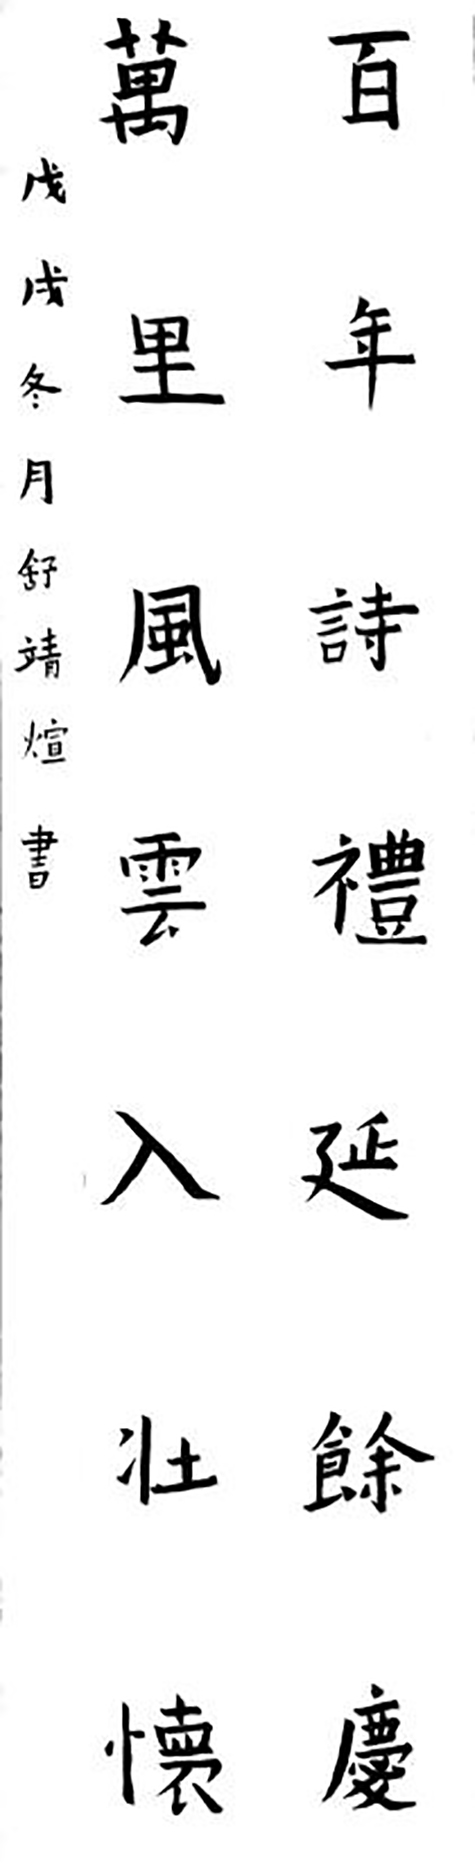 百年詩禮延餘慶
萬里風雲入壯懷
戊戌冬月舒靖煊書